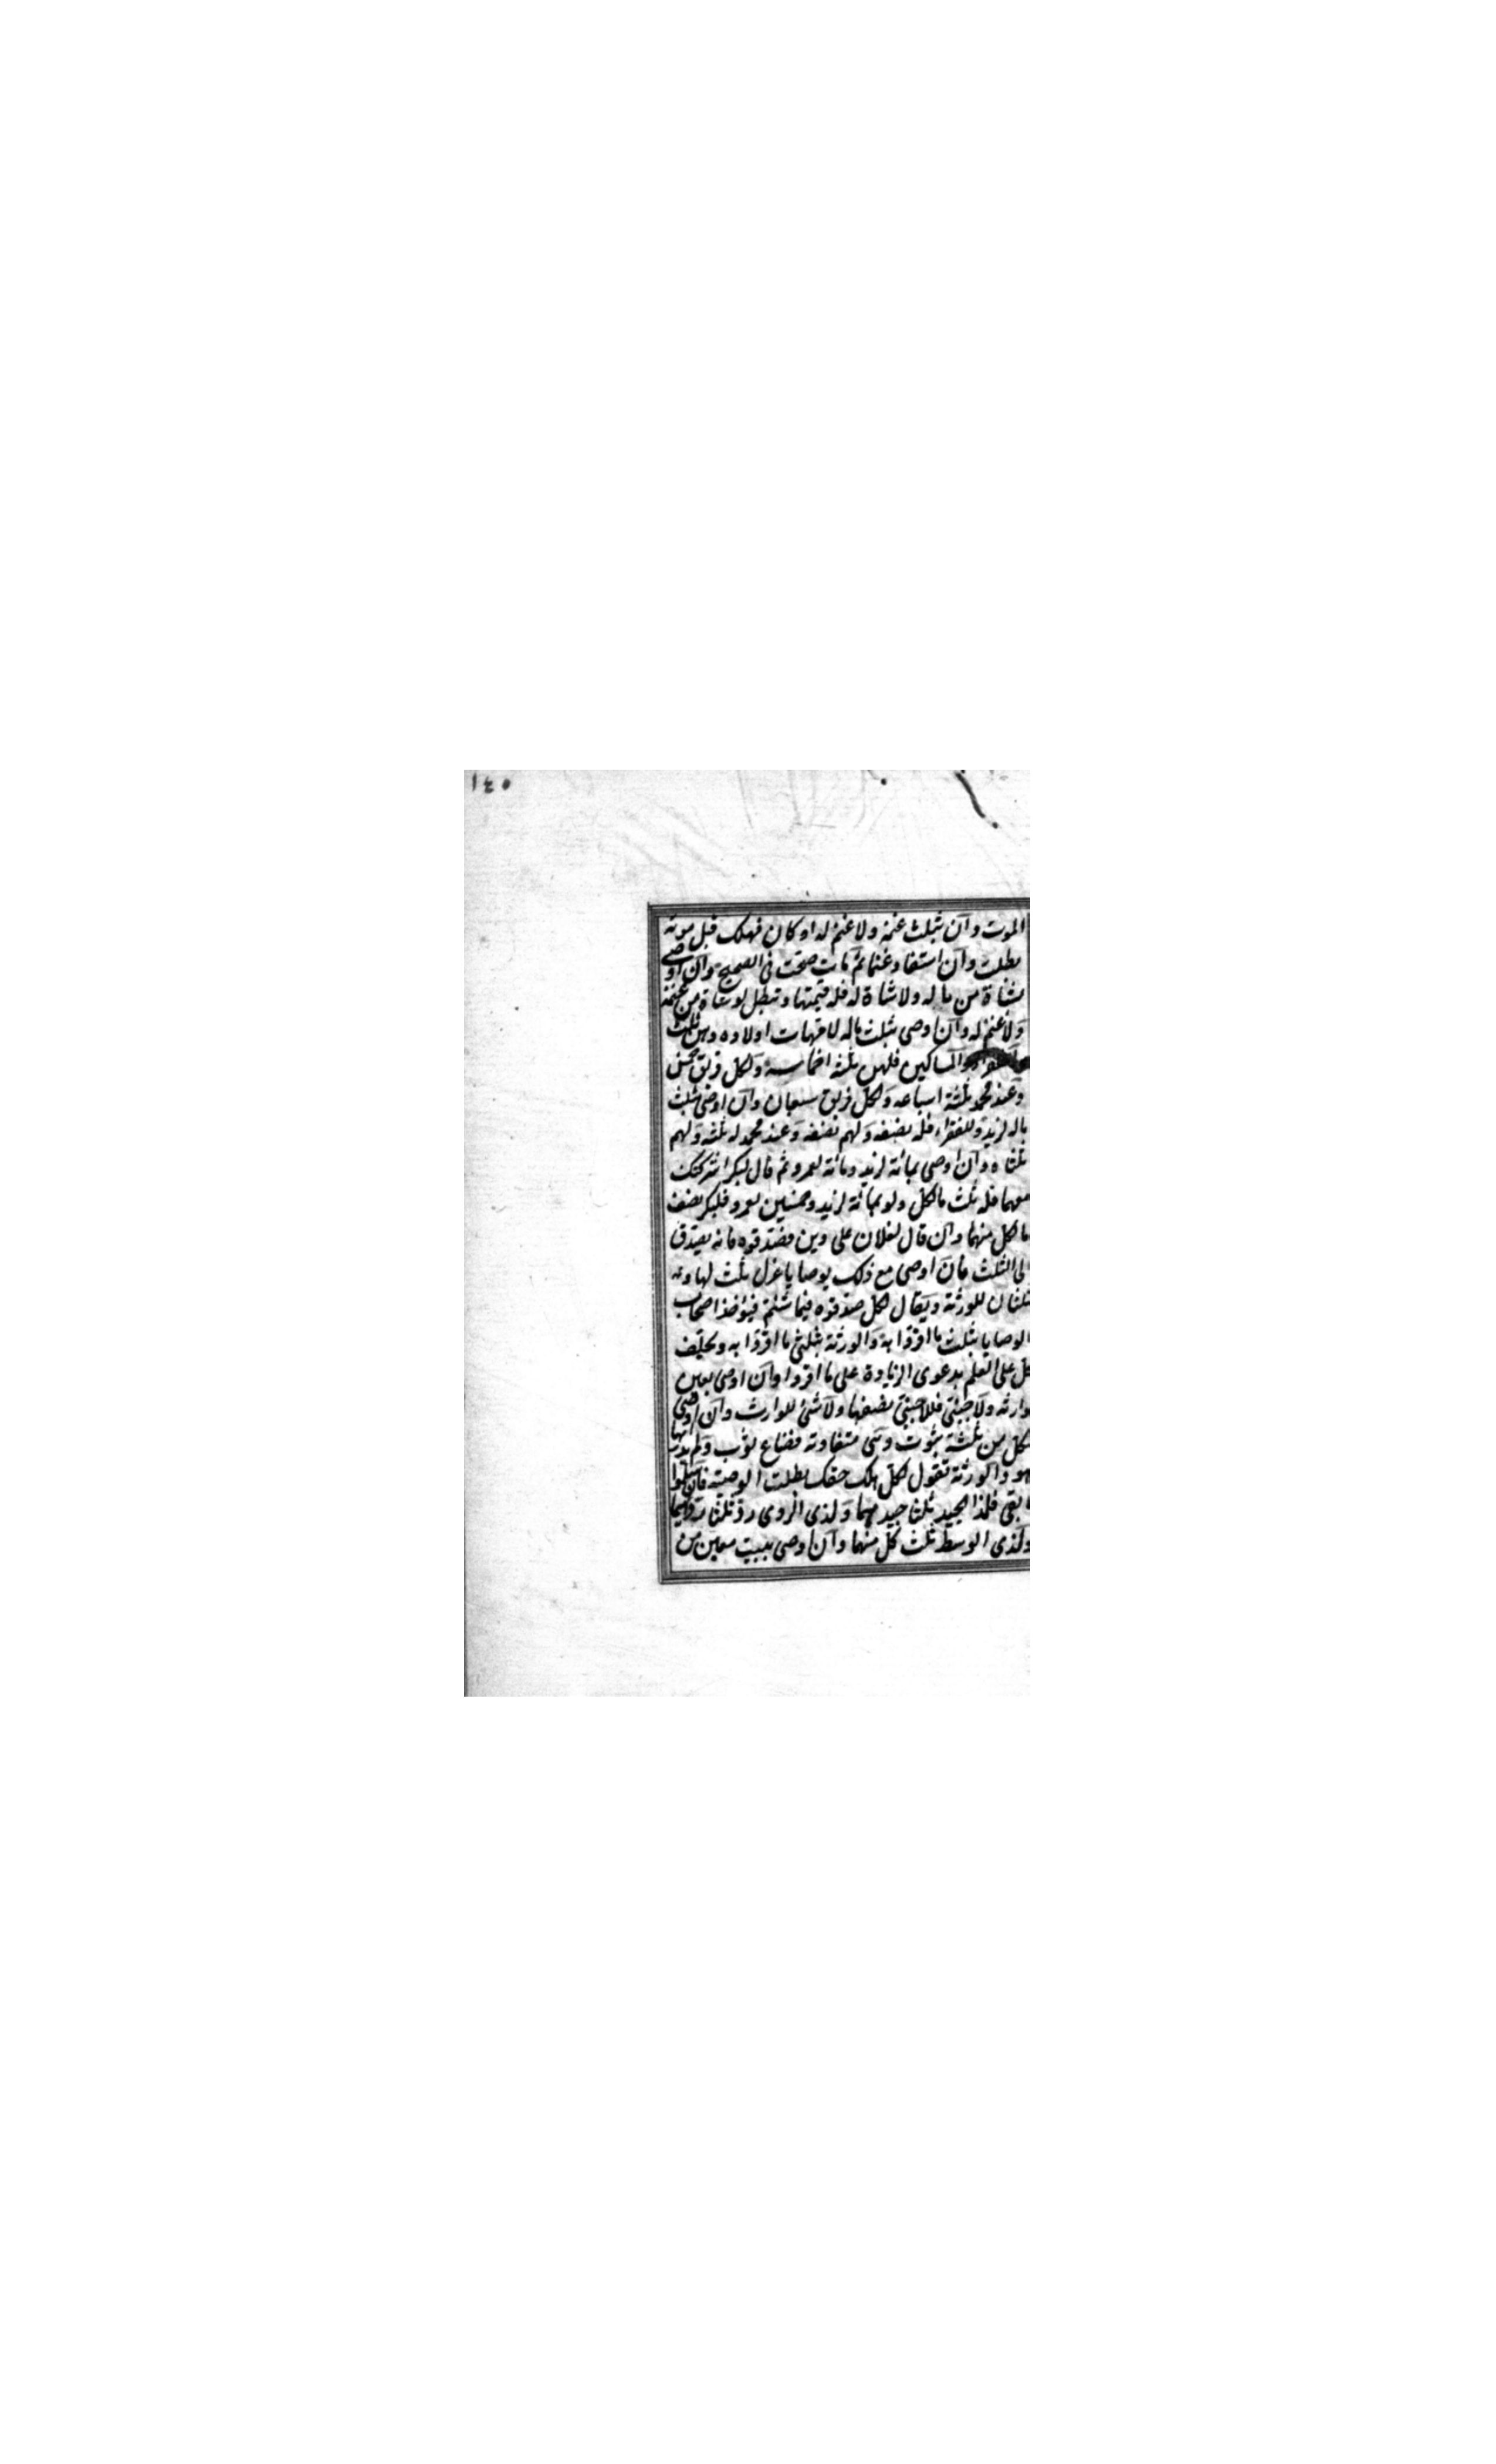 ١٤٥
الموت وان بثلث غنمه ولا غنم له او كان فهلك قبل موته
بطلت وان استفاد غنما ثم مات صحت في الصحيح وان اوصى
بشاة من ماله ولا شاة له فله قيمتها وتبطل لو شاة من غنمه
ولا غنم له وان اوصى بثلث ماله لامهات اولاده وهن ثلث
والمساكين فلهن ثلثة اخماسه ولكل فريق خمس
وعند محمد ثلثة اسباعه ولكل فريق سبعان وان اوصى بثلث
ماله لزيد وللفقراء فله نصفه ولهم نصفه وعند محمد له ثلثه ولهم
ثلثاه وان اوصى بمائة لزيد ومائة لعمرو ثم قال لبكر اشركتك
معهما فله ثلث ما لكل ولو بمائة لزيد وخمسين لعمرو فلبكر نصف
ما لكل منهما وان قال لفلان على دين فصدقوه فانه يصدق
الى الثلث فان اوصى مع ذلك بوصايا عزل ثلث لها و
ثلثان للورثة ويقال لكل صدقوه فيما شئتم فيؤخذ اصحاب
الوصايا بثلث ما اقروا به والورثة بثلثي ما اقروا به ويحلف
كل على العلم بدعوى الزيادة على ما اقروا وان اوصى بعين
لوارثه ولاجنبي فللاجنبي نصفها ولا شئ للوارث وان اوصى
لكل من ثلثة بثوب وهى متفاوتة فضاع ثوب ولم يدر ايها
هو والورثة تقول لكل هلك حقك بطلت الوصية فان سلموا
ما بقى فلذا الجيد ثلثا جيدهما ولذى الردى ثلثا رديهما
ولذى الوسط ثلث كل منهما وان اوصى ببيت معين من